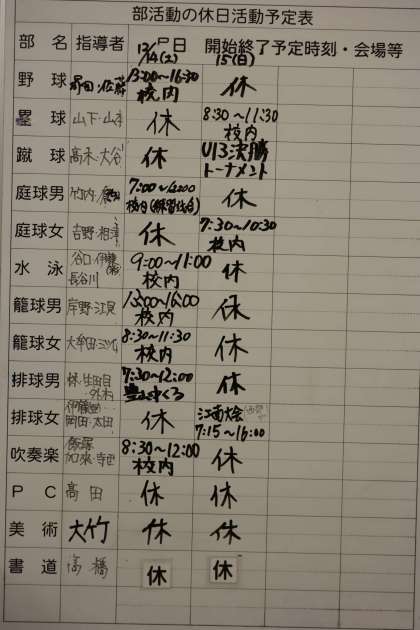 部活動の休日活動予定表
部　名 指導者 12/14(土) 戸日 15(日) 開始終了予定時刻・会場等
野　球 13:00〜16:30 休
校内
塁　球 山下・山本 休 8:30〜11:30
校内
蹴　球 高木・大谷 休 U13決勝
トーナメント
庭球男 竹内 7:00〜12:00 休
校内(練習試合)
庭球女 吉野・相澤 休 7:30〜10:30
校内
水　泳 谷口・伊藤 9:00〜11:00 休
長谷川 校内
籠球男 岸野・江尻 13:00〜16:00 休
校内
籠球女 大牟田 8:30〜11:30 休
校内
排球男 林・生田目 7:30〜12:00 休
外村
排球女 伊藤 休 江南大会
岡田・太田 7:15〜16:00
吹奏楽 飯塚 8:30〜12:00 休
加来・寺西 校内
ＰＣ 高田 休 休
美　術 大竹 休 休
書　道 高橋 休 休